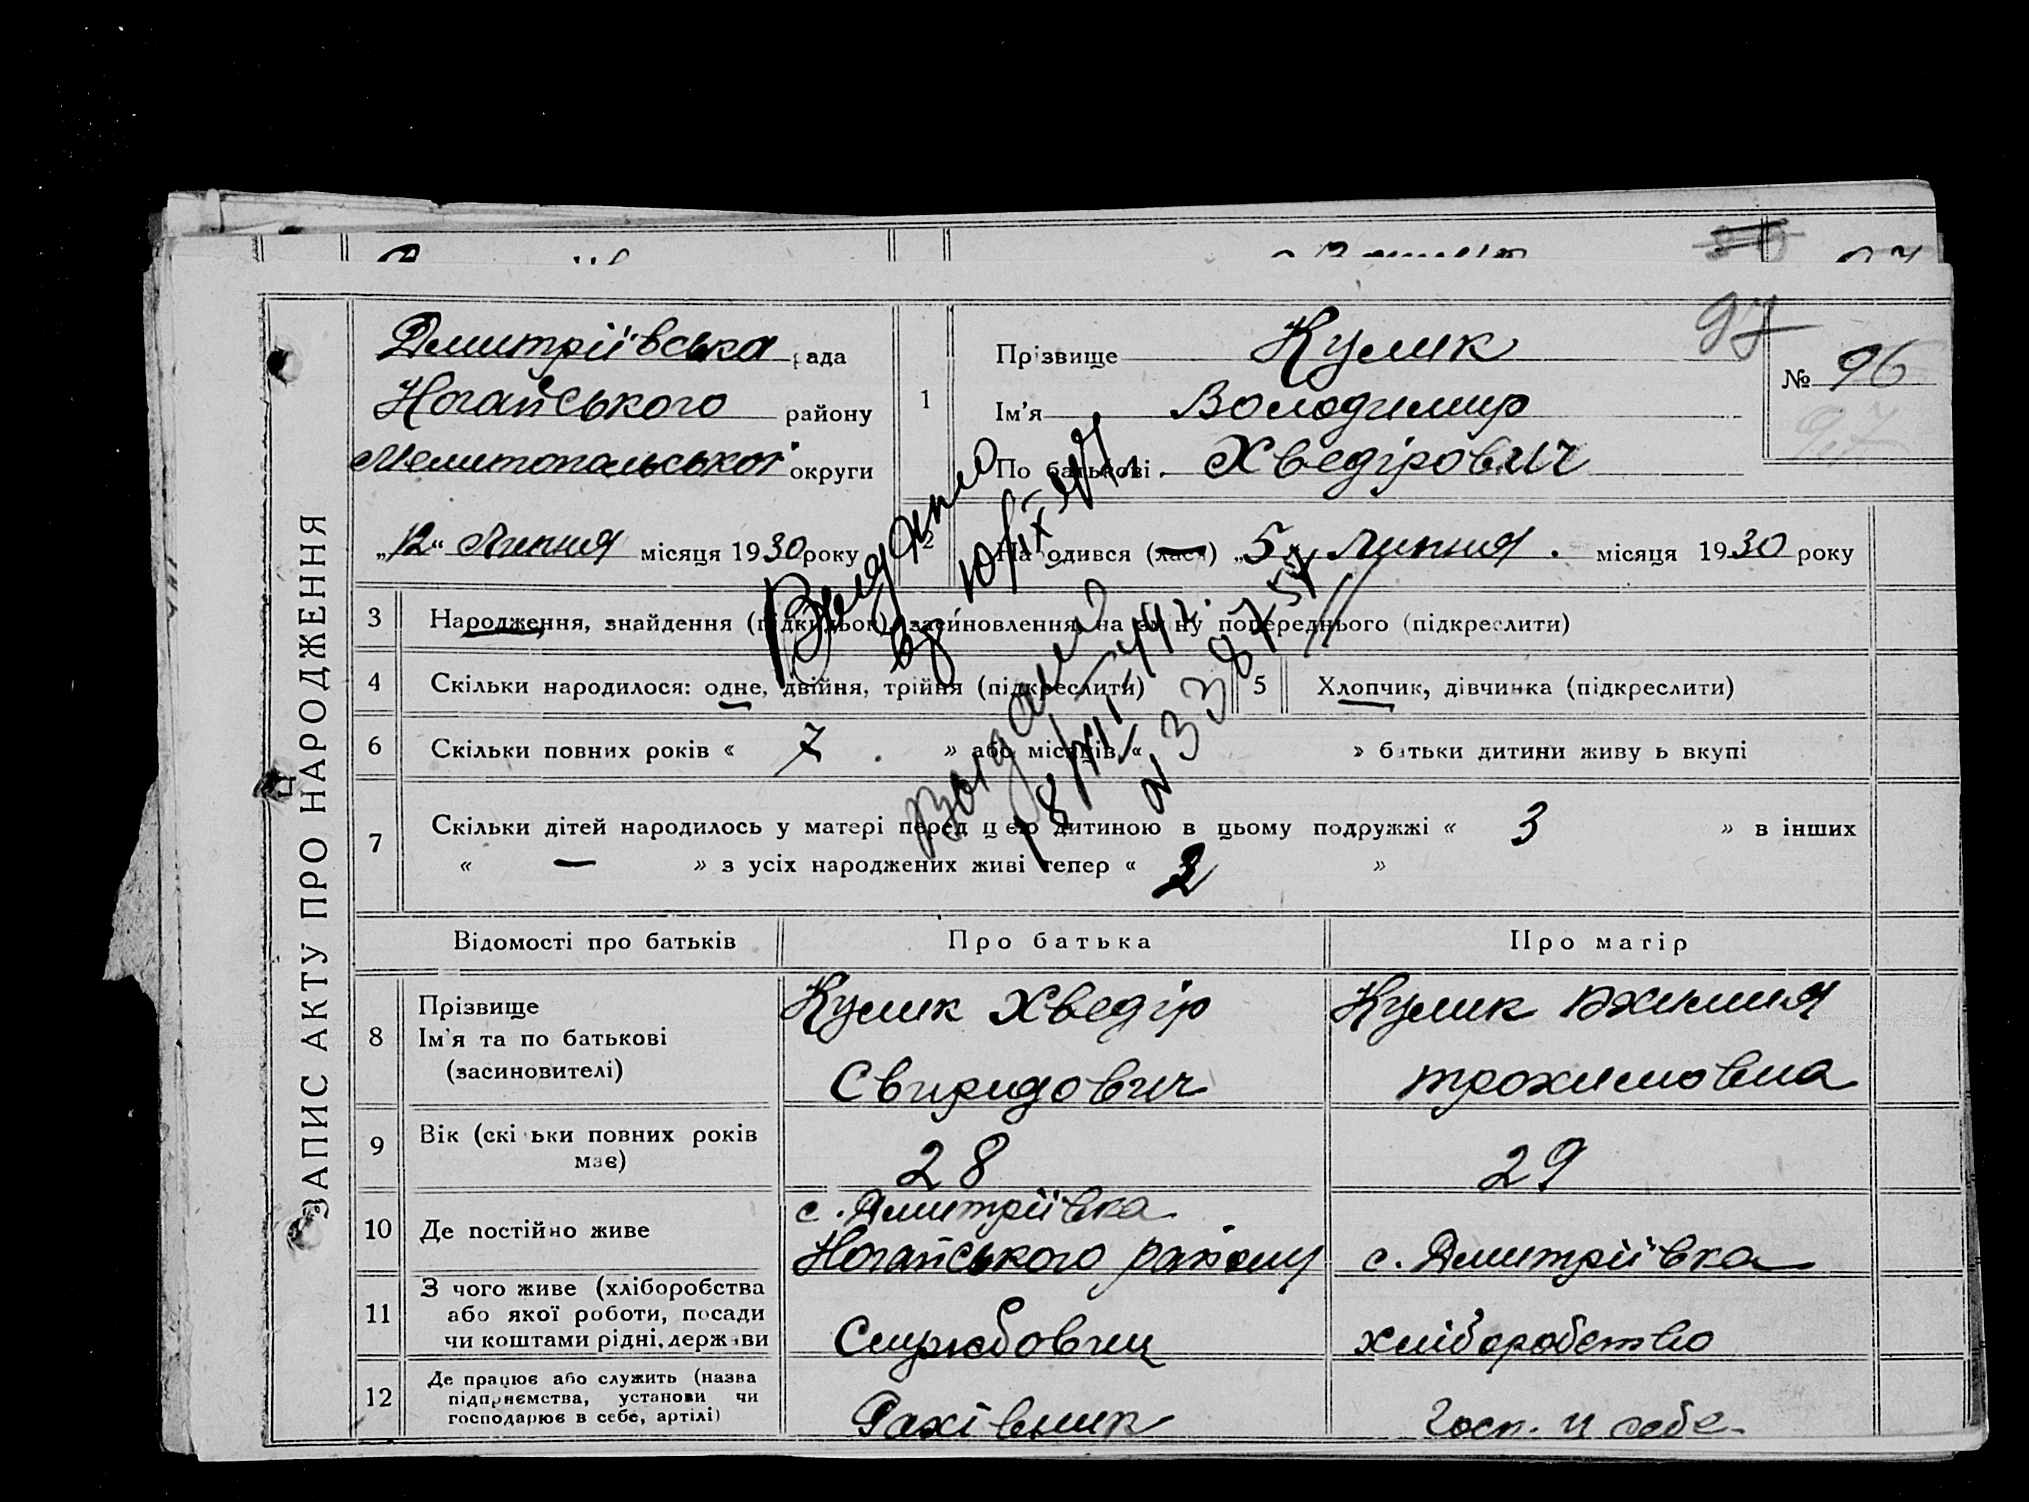 ЗАПИС АКТУ ПРО НАРОДЖЕННЯ
Дмитріївська рада
Ногайського району
Мелитопольської округи
„12“ Липня місяця 1930 року
1
Прізвище Кулик
Ім'я Володимир
По батькові Хведірович
97
№ 96
97
2
Народився (лася) „5“ Липня місяця 1930 року
3 Народження, знайдення (підкидьок), засиновлення на зміну попереднього (підкреслити)
4 Скільки народилося: одне, двійня, трійня (підкреслити)
5 Хлопчик, дівчинка (підкреслити)
6 Скільки повних років « 7 » або місяців « » батьки дитини живу ь вкупі
7 Скільки дітей народилось у матері перед цією дитиною в цьому подружжі « 3 » в інших
« — » з усіх народжених живі тепер « 2 »
Відомості про батьків
Про батька
Про матір
8 Прізвище
Ім'я та по батькові
(засиновителі)
Кулик Хведір
Свиридович
Кулик
Трохимовна
9 Вік (скільки повних років
має)
28
29
10 Де постійно живе
с. Дмитріївка
Ногайського району
с. Дмитріївка
11 З чого живе (хліборобства
або якої роботи, посади
чи коштами рідні, держави
Службовец
хліборобство
12 Де працює або служить (назва
підприємства, установи чи
господарює в себе, артілі)
Рахівник
Госп. у себе